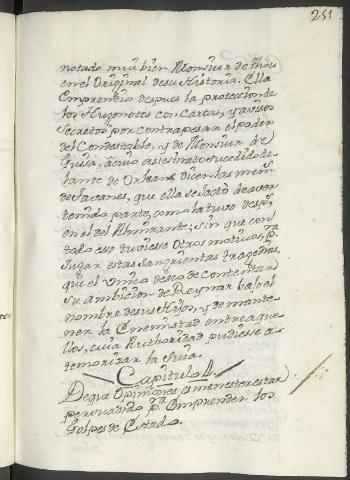 251
notado mui bien Monsiur de Thou
en el Original de su Historia. Ella
Emprendio despues la proteccion de
los Hugonotes con Cartas, y avisos
Secretos por contrapesar el poder
del Condestable, y de Monsiur de
Guisa, a cuio asesinato sucedido de-
lante de Orleans, dicen las mem.
de Tavanes, que ella se jactò de aver
tenido parte, como la tuvo desp.s
en el del Almirante; sin que con
todo eso tuviese otros motivos, p.a
Jugar estas sangrientas tragedias,
que el Unico deseo de contentar
su ambicion de Reynar bajo el
nombre de sus Hijos, y de mante-
ner la Enemistad entre aque-
llos, cuia Authoridad pudiese a-
temorizar la suia.
Capitulo 4.
De que Opiniones es menester estar
persuadido p.a Emprender los
Golpes de Estado.